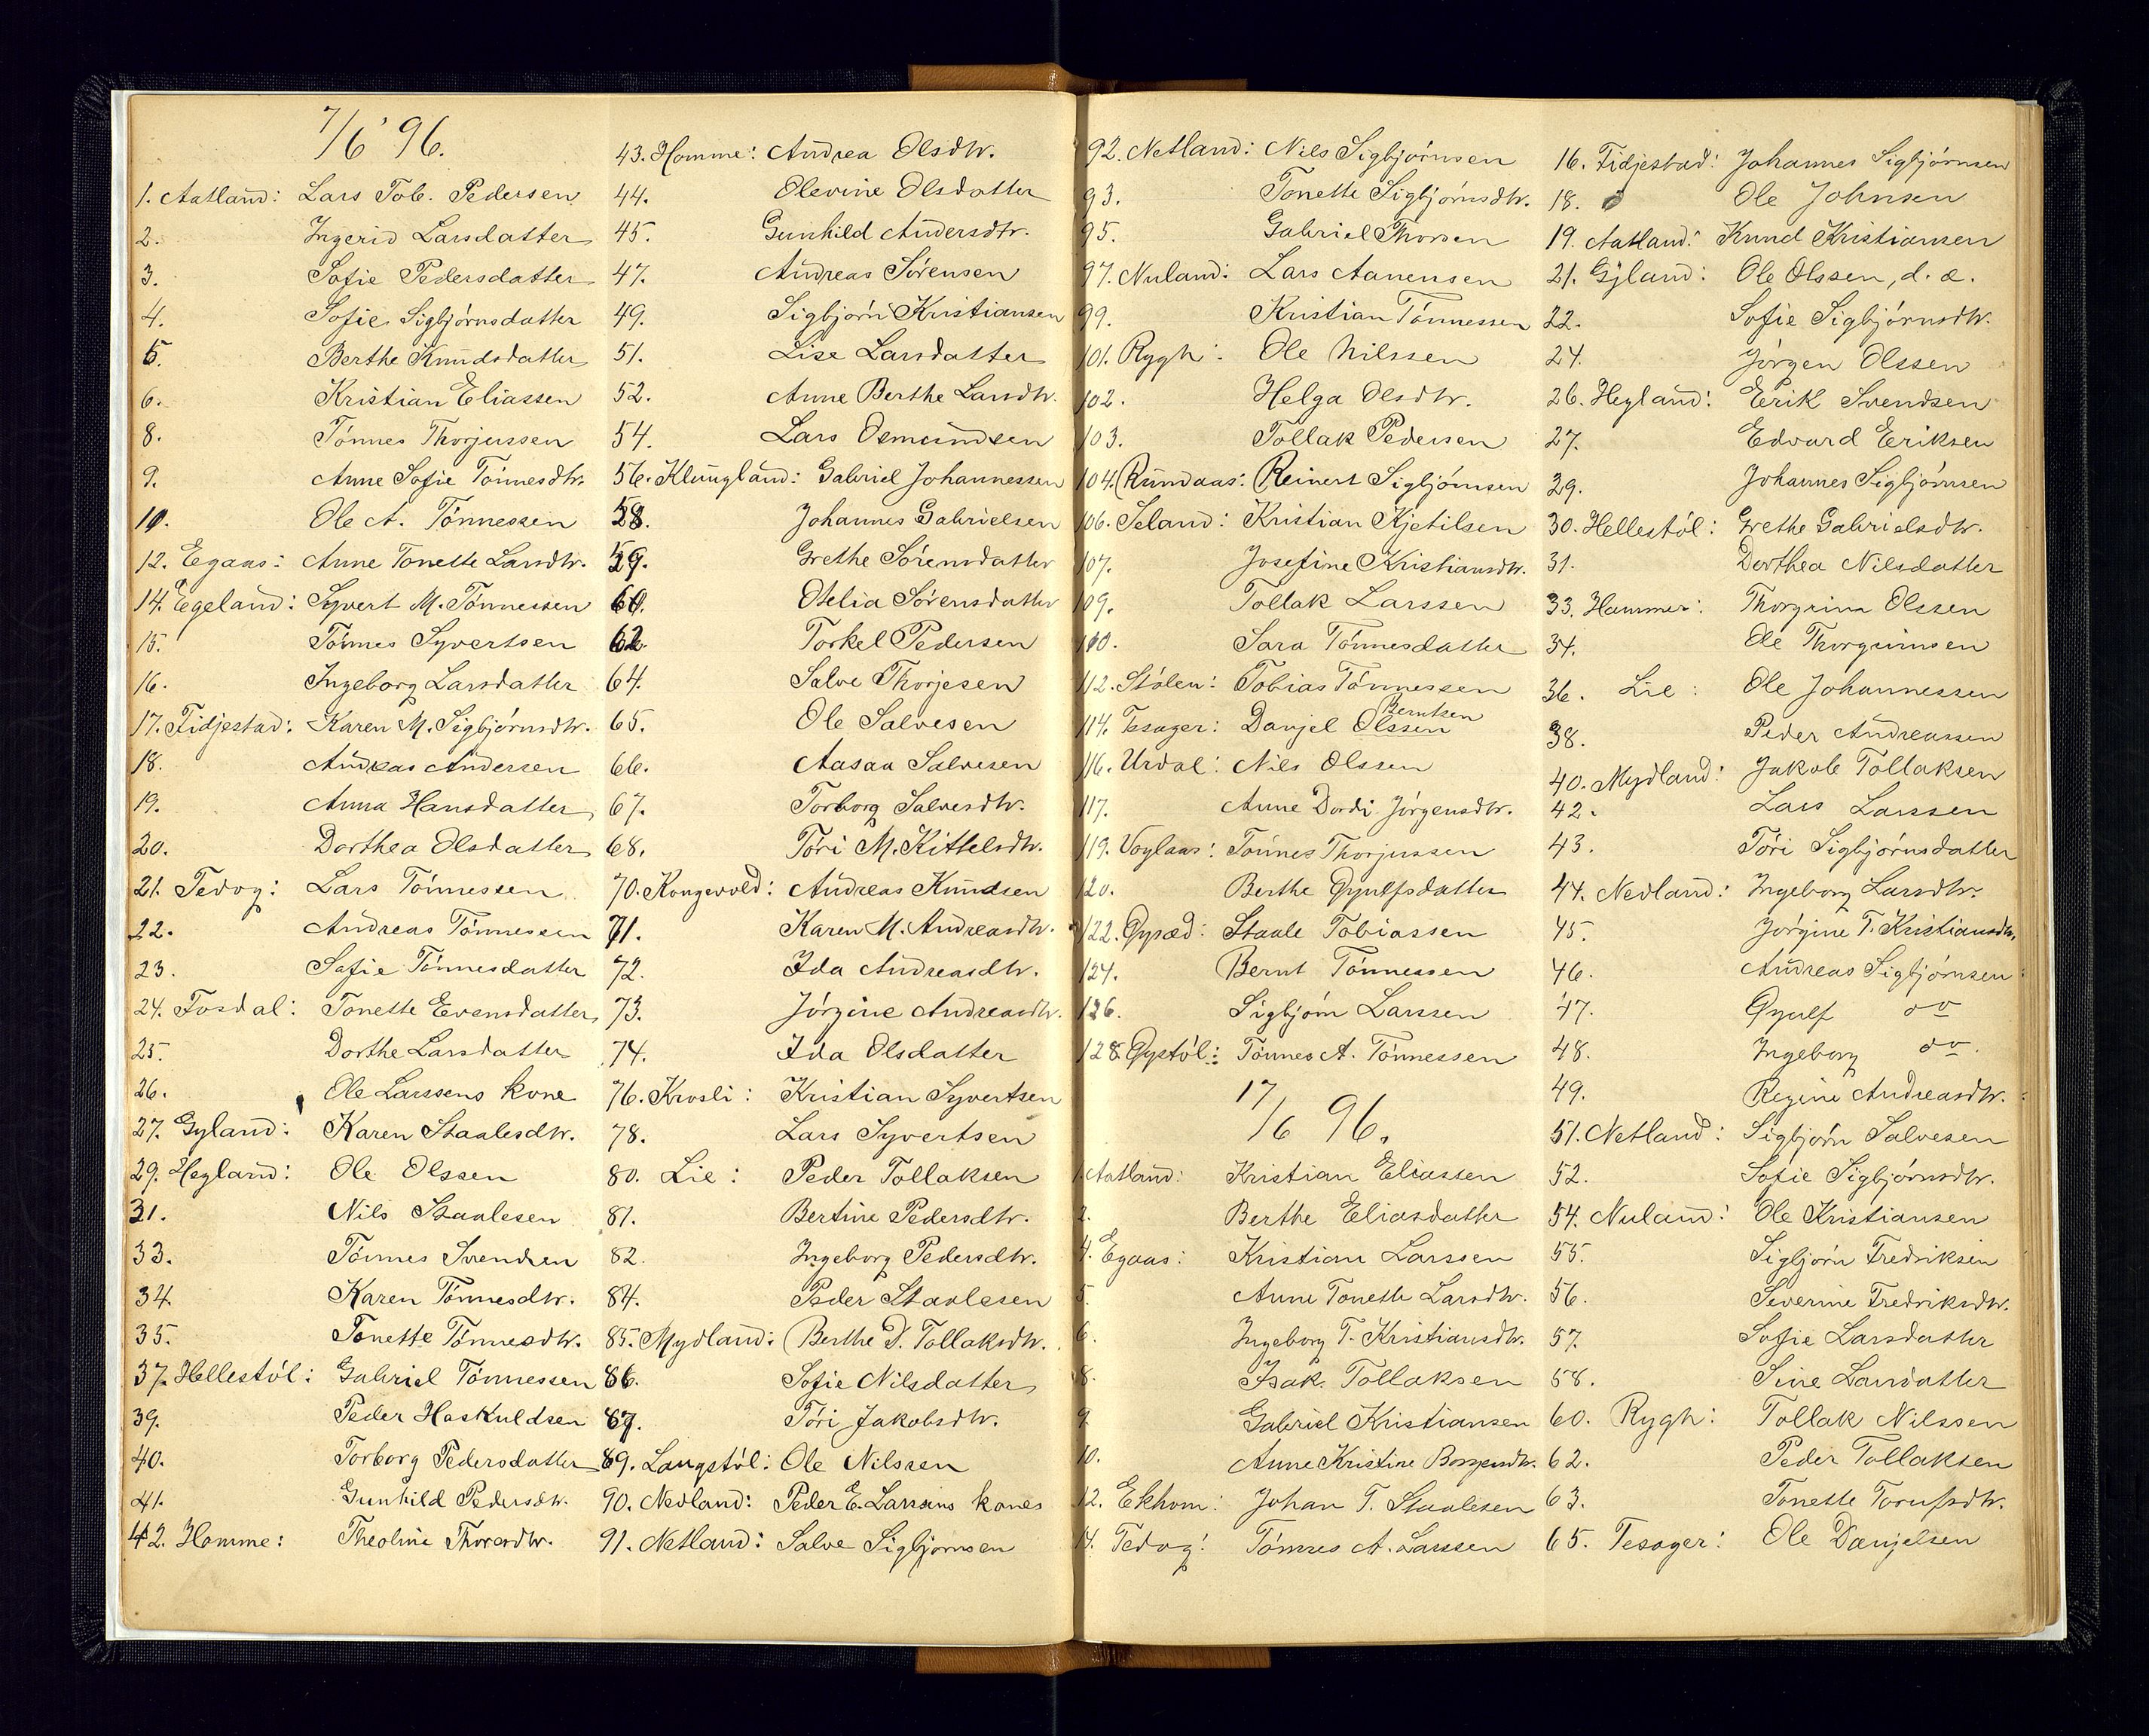 7/6 96.
1. Aatland: Lars Tob. Pedersen
2. Ingerid Larsdatter
3. Sofie Pedersdatter
4. Sofie Sigbjörnsdatter
5. Berthe Knudsdatter
6. Kristian Eliassen
8. Tönnes Thorjussen
9. Anne Sofie Tönnesdtr.
10. Ole A. Tönnessen
12. Egaas: Anne Tonette Larsdtr.
14. Egeland: Syvert M. Tönnessen
15. Tönnes Syvertsen
16. Ingeborg Larsdatter
17. Fidjestad: Karen M. Sigbjörnsdtr.
18. Andreas Andersen
19. Anna Hansdatter
20. Dorthea Olsdatter
21. Tedog: Lars Tönnessen
22. Andreas Tönnessen
23. Sofie Tönnesdatter
24. Fosdal: Tonette Evensdatter
25. Dorthe Larsdatter
26. Ole Larssens kone
27. Gyland: Karen Staalesdtr.
29. Hegland: Ole Olssen
31. Nils Staalesen
33. Tönnes Svendsen
34. Karen Tönnesdtr.
35. Tonette Tönnesdtr.
37. Hellestöl: Gabriel Tönnessen
39. Peder Haskuldsen
40. Torborg Pedersdatter
41. Gunhild Pedersdtr.
42. Homme: Theoline Thoresdtr.
43. Homme: Andrea Olsdtr.
44. Olevine Olsdatter
45. Gunhild Andersdtr.
47. Andreas Sörensen
49. Sigbjörn Kristiansen
51. Lise Larsdatter
52. Anne Berthe Larsdtr.
54. Lars Osmundsen
56. Klungland: Gabriel Johannessen
58. Johannes Gabrielsen
59. Grethe Sörensdatter
60. Otelia Sörensdatter
62. Torkel Pedersen
64. Salve Thorjesen
65. Ole Salvesen
66. Aasaa Salvesen
67. Torborg Salvesdtr.
68. Töri M. Kittelsdtr.
70. Kongevold: Andreas Knudsen
71. Karen M. Andreasdtr.
72. Ida Andreasdtr.
73. Jörgine Andreasdtr.
74. Ida Olsdatter
76. Krosli: Kristian Syvertsen
78. Lars Syvertsen
80. Lie: Peder Tollaksen
81. Bertine Pedersdtr.
82. Ingeborg Pedersdtr.
84. Peder Staalesen
85. Mydland: Berthe D. Tollaksdtr.
86. Sofie Nilsdatter
87. Töri Jakobsdtr.
89. Langstöl: Ole Nilssen
90. Nedland: Peder E. Larssens kones
91. Netland: Salve Sigbjörnsen
92. Netland: Nils Sigbjörnsen
93. Tonette Sigbjörnsdtr.
95. Gabriel Thorsen
97. Nuland: Lars Aanensen
99. Kristian Tönnessen
101. Rygh: Ole Nilssen
102. Helga Olsdtr.
103. Tollak Pedersen
104. Rundaas: Reinert Sigbjörnsen
106. Seland: Kristian Kjetilsen
107. Josefine Kristiansdtr.
109. Tollak Larssen
110. Sara Tönnesdatter
112. Stölen: Tobias Tönnessen
Berntsen
114. Tesager: Danjel Olssen
116. Urdal: Nils Olssen
117. Anne Dordi Jörgensdtr.
119. Voglaas: Tönnes Thorjussen
120. Berthe Gyulfsdatter
122. Gysæd: Staale Tobiassen
124. Bernt Tönnessen
126. Sigbjörn Larssen
128. Gystöl: Tönnes A. Tönnessen
17/6 96.
1. Aatland: Kristian Eliassen
2. Berthe Eliasdatter
4. Egaas: Kristian Larssen
5. Anne Tonette Larsdtr.
6. Ingeborg T. Kristiansdtr.
8. Isak. Tollaksen
9. Gabriel Kristiansen
10. Anne Kristine
12. Ekhom: Johan T. Staalesen
14. Tedog: Tönnes A. Larssen
16. Fidjestad: Johannes Sigbjörnsen
18. Ole Johnsen
19. Aatland: Knud Kristiansen
21. Gyland: Ole Olssen, d. æ.
22. Sofie Sigbjörnsdtr.
24. Jörgen Olssen
26. Hegland: Erik Svendsen
27. Edvard Eriksen
29. Johannes Sigbjörnsen
30. Hellestöl: Grethe Gabrielsdtr.
31. Dorthea Nilsdatter
33. Hammer: Thorgrim Olssen
34. Ole Thorgrimsen
36. Lie: Ole Johannessen
38. Peder Andreassen
40. Mydland: Jakob Tollaksen
42. Lars Larssen
43. Töri Sigbjörnsdatter
44. Nedland: Ingeborg Larsdtr.
45. Jörgine T. Kristiansdtr.
46. Andreas Sigbjörnsen
47. Gyulf do
48. Ingeborg do.
49. Regine Andreasdtr.
51. Netland: Sigbjörn Salvesen
52. Sofie Sigbjörnsdtr.
54. Nuland: Ole Kristiansen
55. Sigbjörn Fredriksen
56. Severine Fredriksdtr.
57. Sofie Larsdatter
58. Sine Larsdatter
60. Rygh: Tollak Nilssen
62. Peder Tollaksen
63. Tonette Torufsdtr.
65. Tesager: Ole Danjelsen